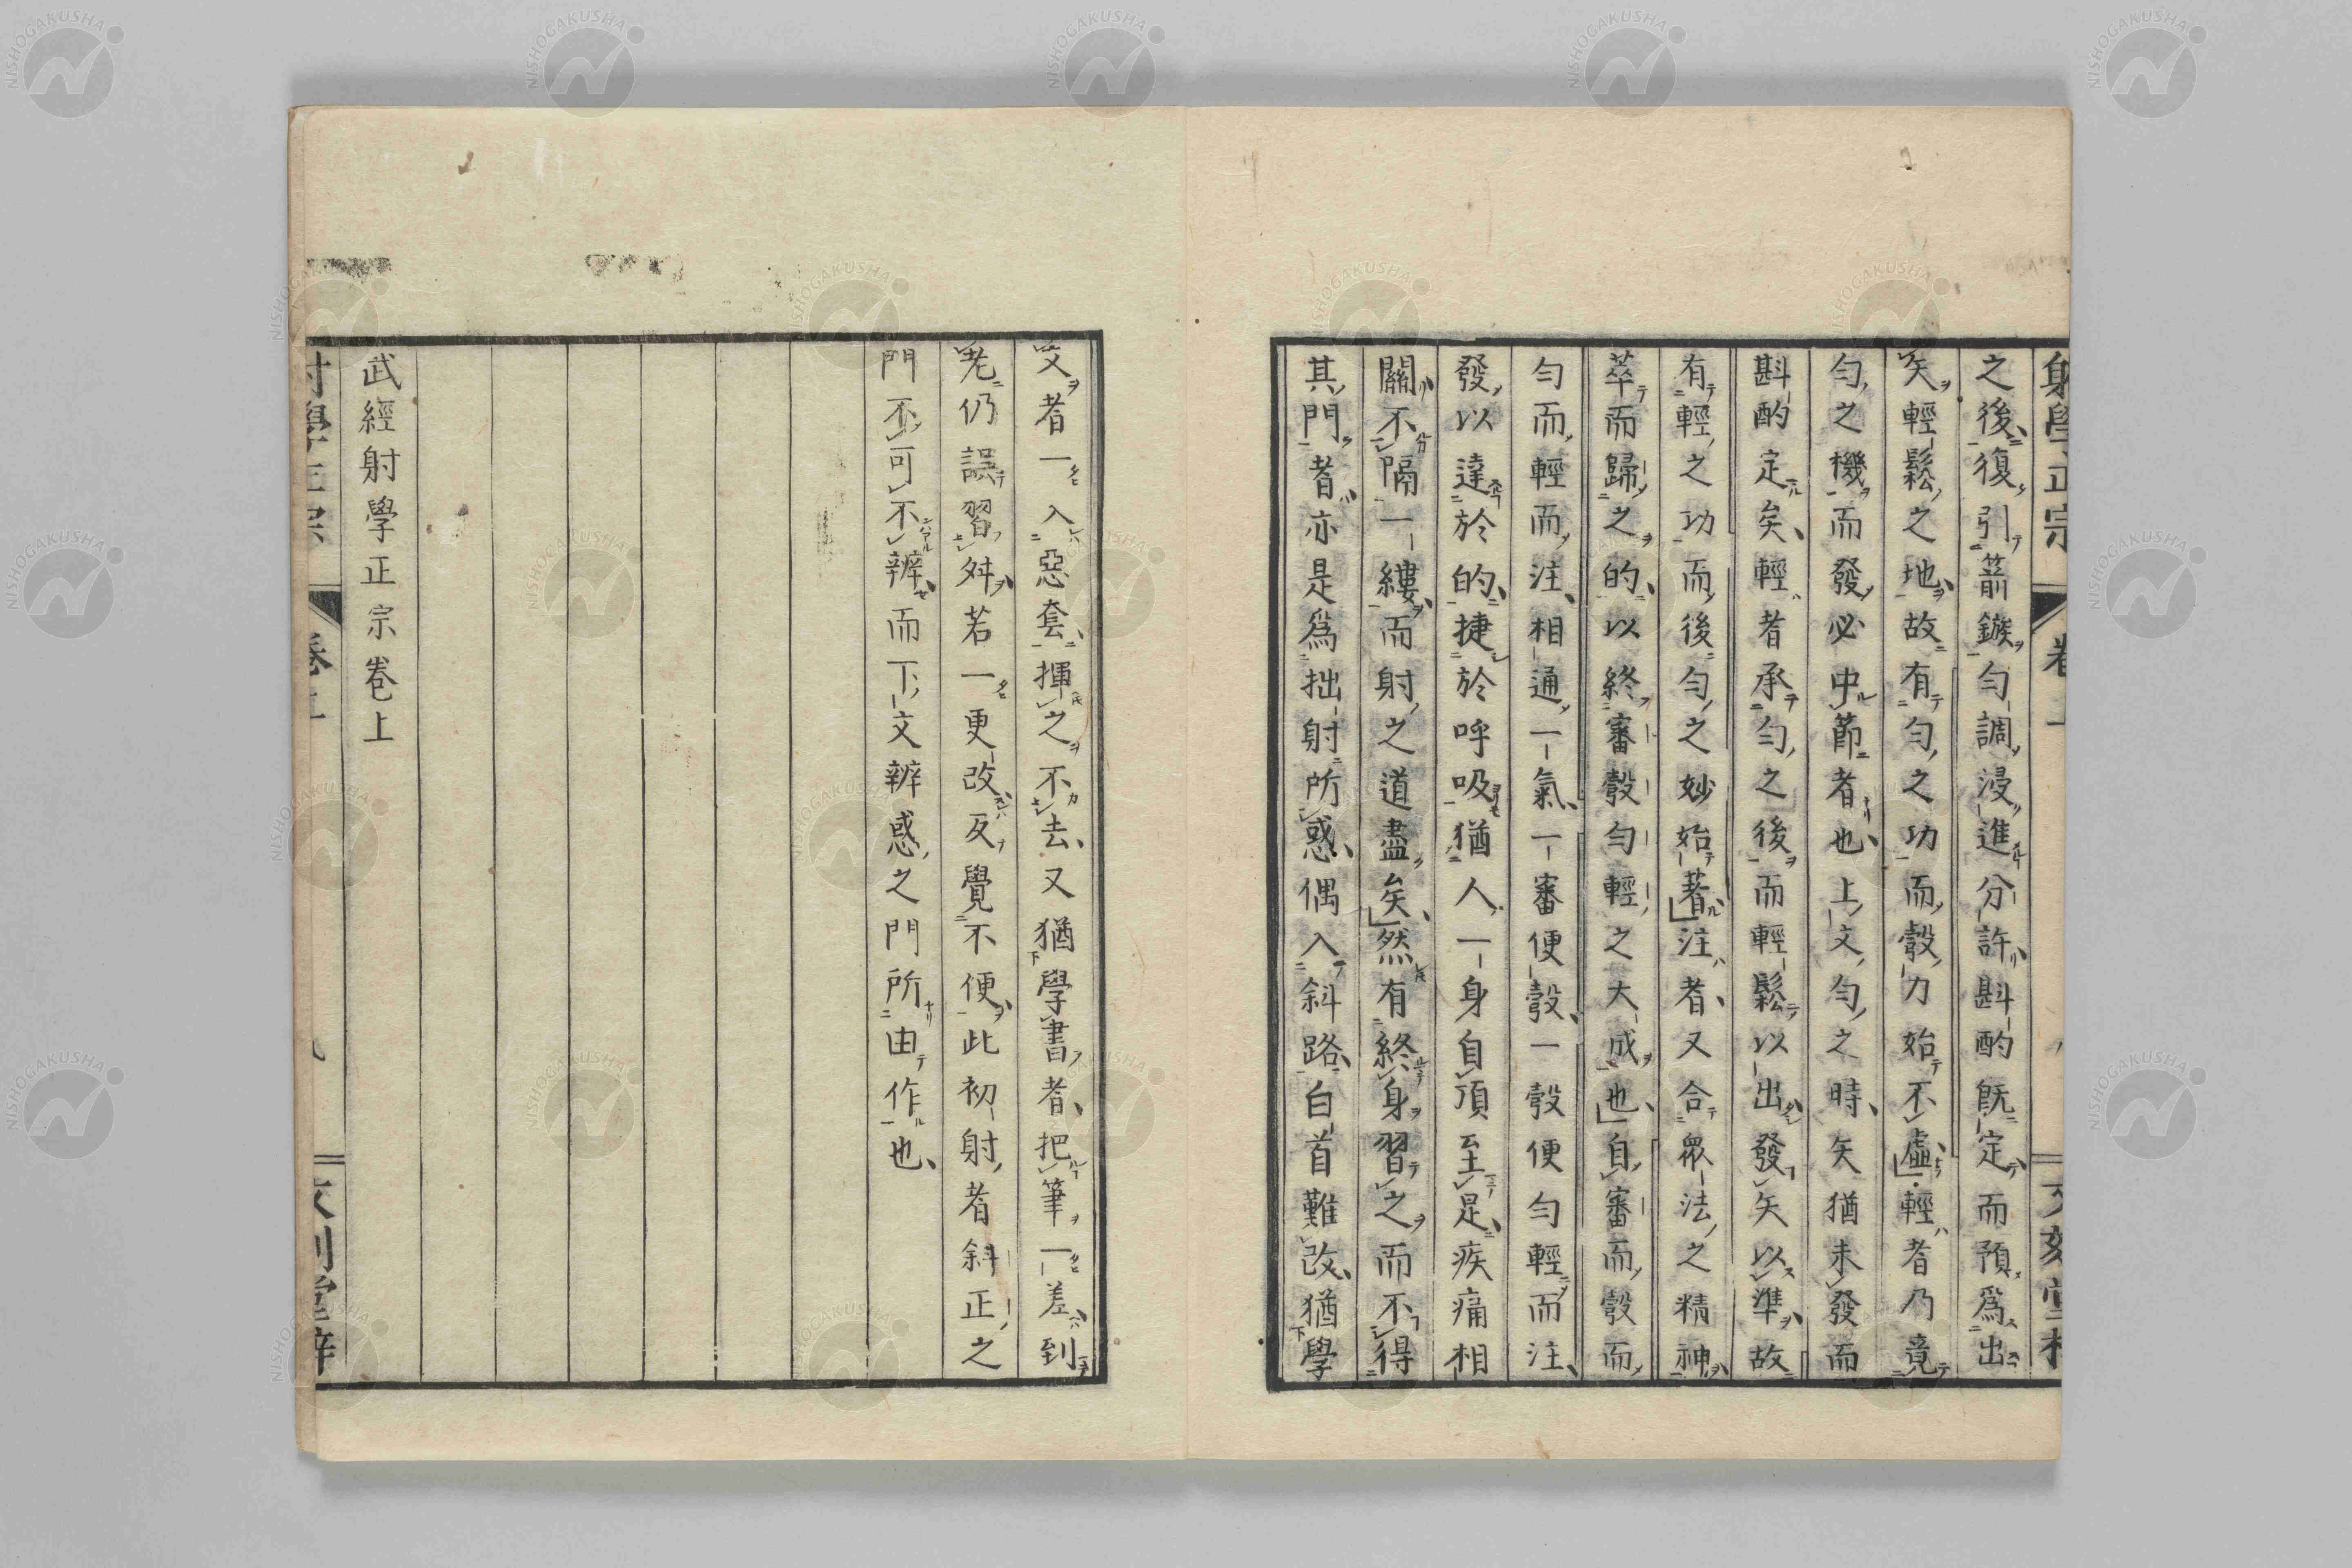 射學正宗
卷上
之後復引箭鏃勻調浸進分許斟酌既定而預爲出
矢輕鬆之地故有勻之功而彀力始不虛輕者乃竟
勻之機而發必中節者也上文勻之時矢猶未發而
斟酌定矣輕者承勻之後而輕鬆以出發矢以準故
有輕之功而後勻之妙始著注者又合衆法之精神
萃而歸之的以終審彀勻輕之大成也自審而彀而
勻而輕而注相通一氣一審便彀一彀便勻輕而注
發以達於的捷於呼吸猶人一身自頂至是疾痛相
關不隔一縷而射之道盡矣然有終身習之而不得
其門者亦是爲拙射所惑偶入斜路白首難改猶學
文者一入惡套揮之不去又猶學書者把筆一差到
老仍誤習舛若一更改反覺不便此初射者斜正之
門不可不辨而下文辨惑之門所由作也
武經射學正宗卷上
NISHOGAKUSHA